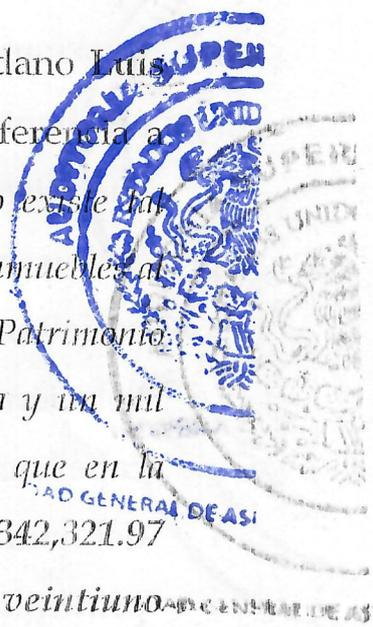 dano Luis
ferencia a
o existe tal
nmuebles al
Patrimonio
a y un mil
que en la
342,321.97
veintiuno
AUDITORÍA SUPER
ESTADOS UNID
DAD GENERAL DE ASI
SUPERI
UNIDO
DAD GENERAL DE AS